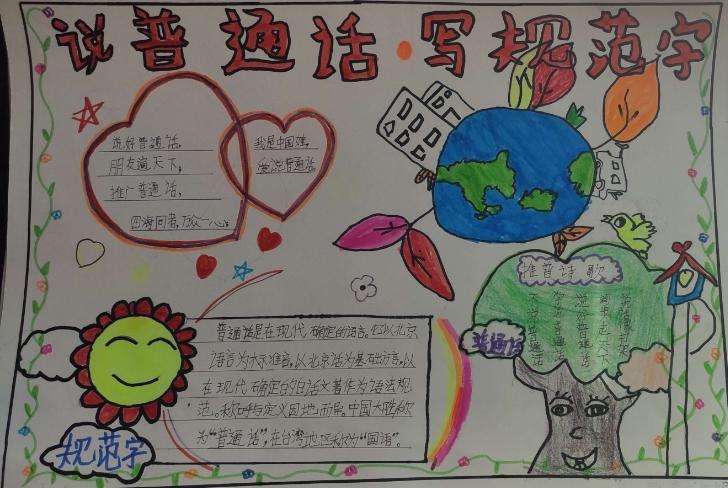 说普通话·写规范字
说好普通话,
朋友遍天下。
推广普通话,
四海同音,万众一心。
我是中国娃,
爱说普通话。
推普诗歌
走天下
说好普通话
不说普通话
普通话
普通话是在现代确定的语言。它以北京
语言为标准音,以北京话为基础方言,以
在现代确定的白话文著作为语法规
范。称呼与定义因地而异,中国大陆称
为“普通话”,在台湾地区称为“国语”。
规范字